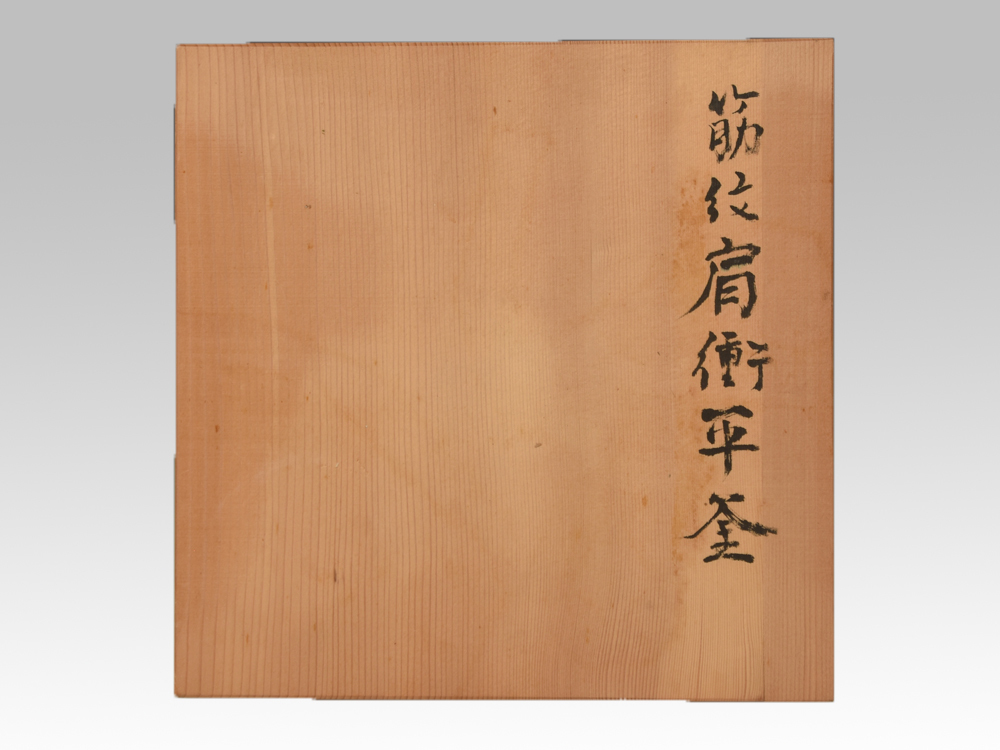 筋紋肩衝平釜